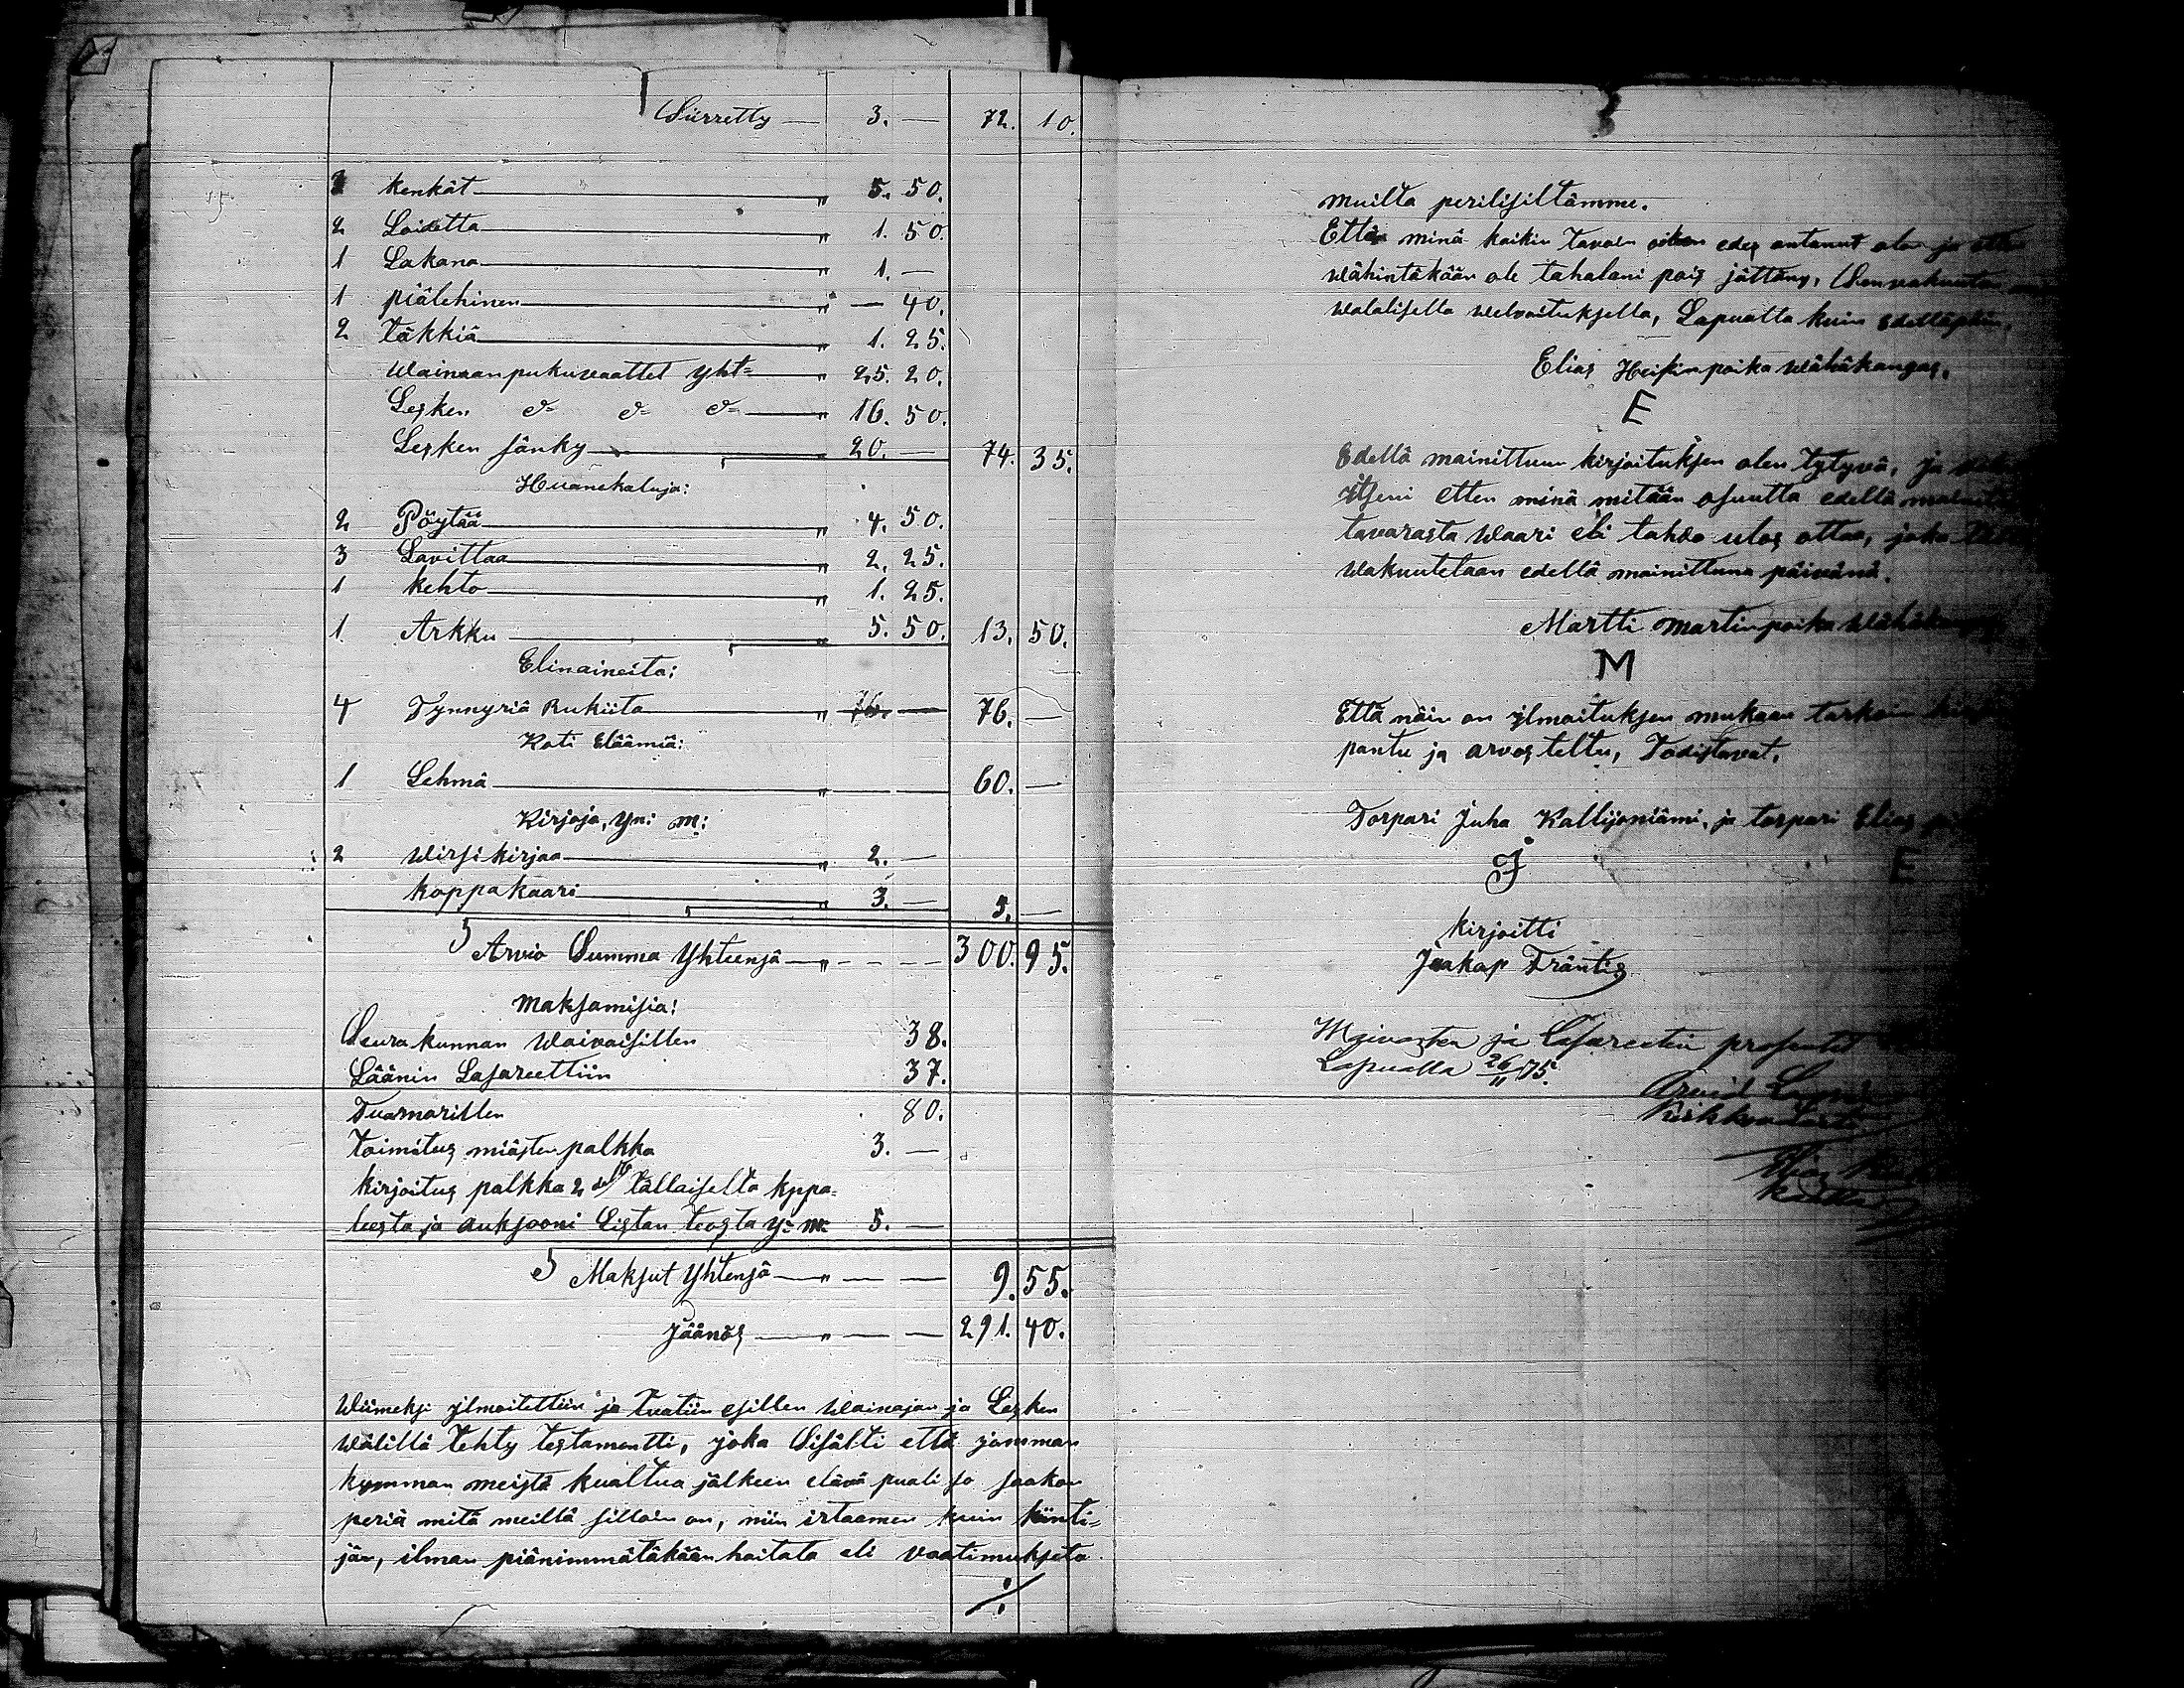 Siirretty — 3. — 72. 10.
kenkät — „ 5. 50.
2 Loidetta — „ 1. 50.
1 Lakana — „ 1. —
1 piälehinen — „ — 40.
2 täkkiä — „ 1. 25.
Wainaan pukuvaattet yht= — „ 25. 20.
Lesken d= d= d= — „ 16. 50.
Lesken sänky — 20. — 74. 35.
Huanekaluja:
2 Pöytää — „ 4. 50.
3 Lavittaa — „ 2. 25.
1 kehto — „ 1. 25.
1 Arkku — „ 5. 50. 13. 50.
Elinaineita:
4 Tynnyriä Rukiita — „ 76. — 76. —
Koti Eläämiä:
1 Lehmä — „ — — 60. —
Kirjoja, yn: m:
2 Wirsikirjaa — „ 2. —
koppakaari — „ 3. — 5. —
Arvio Summa Yhteensä — „ — — — 300. 95.
Maksamisia:
Seurakunnan Waivaisillen 38.
Läänin Lasareettiin 37.
Tuamarillen 80.
toimitus miästen palkka 3. —
kirjoitus palkka 2 tällaiselta kppa=
leesta ja auksooni Listan teosta y= m= 5. —
Maksut Yhtensä — „ — — 9. 55.
Jäänös — „ — — 291. 40.
Wiimeksi ilmoitettiin ja tuatiin esillen Wainajan ja Lesken
Wälillä tehty testamentti, joka Sisälti että jomman
kumman meistä kualtua jälkeen elävä puali so saakan
periä mitä meillä silloin on, niin irtaamen kuin kiinti=
jän, ilman piänimmätäkään haitata eli vaatimukseta
./.
muilta perilisiltämme.
Että minä kaikin tavoin oiken edes antanut olen ja
wähintäkään ole tahalani pois jättäny, Sen vakuutan
walalisella welvoituksella, Lapualla kuin Edelläpäin.
Elias Heikinpoika Wähäkangas.
E
Edellä mainittuun kirjoituksen olen tytyvä, ja
itseni etten minä mitään osuutta edellä
tavarasta waari eli tahdo ulos ottaa, joka
wakuutetaan edellä mainittuna päivänä.
Martti Martinpoika
M
Että näin on ilmoituksen mukaan tarkoin
pantu ja arvosteltu, Todistavat.
Torpari Juha Kallijoniämi, ja torpari Elias
J E
kirjoitti
Jaakap Fräntis
ja Lasareetin prosentit
Lapualla 26/11 75.
Arvid